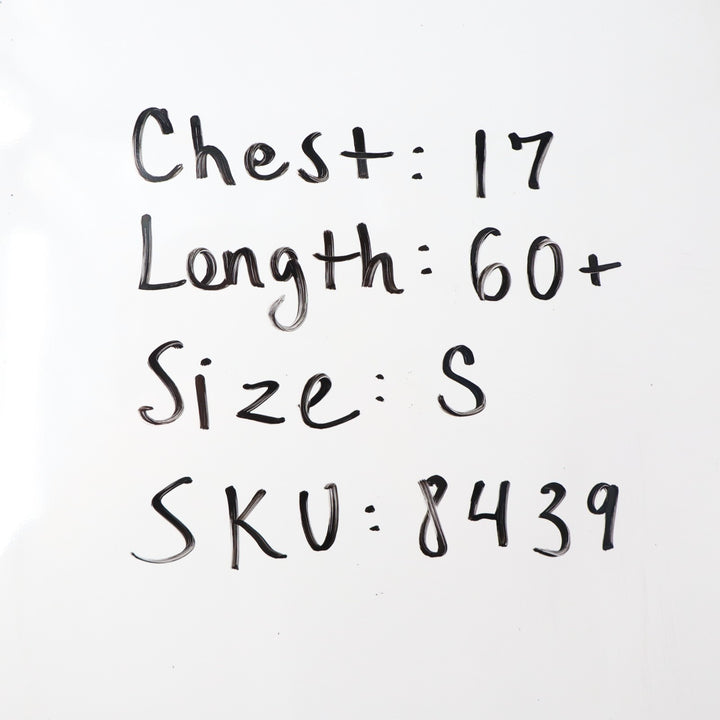 Chest: 17
Length: 60+
Size: S
SKU: 8439